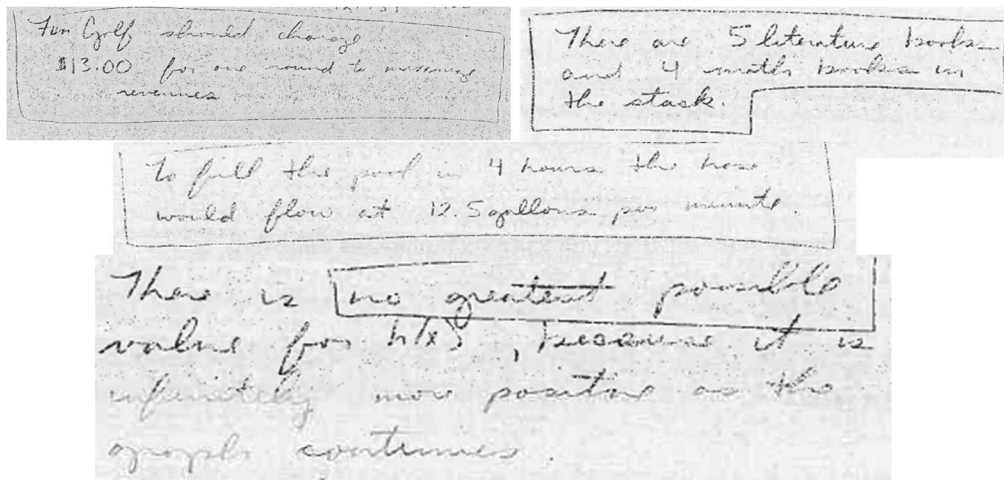 Fun Golf should charge
$13.00 for one round to maximize
revenues
There are 5 literature books
and 4 math books in
the stack.
To fill the pool in 4 hours the hose
would flow at 12.5 gallons per minute.
There is no greatest possible
value for h(x), because it is
infinitely more positive as the
graph continues.